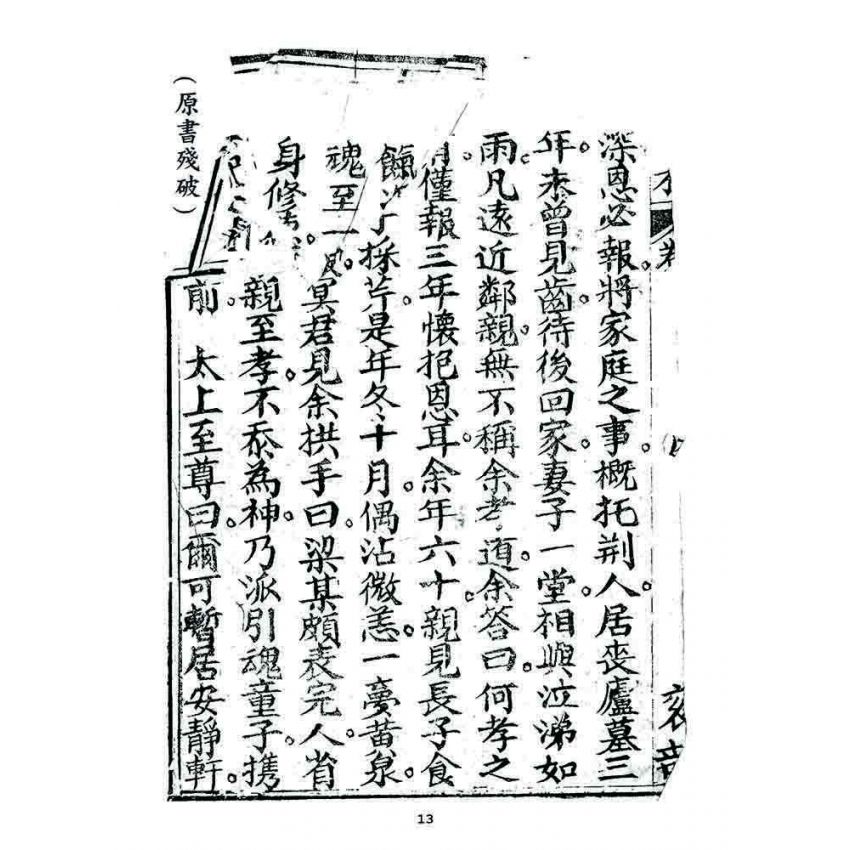 深恩必報。將家庭之事。概托荆人。居丧廬墓三
年。未曾見齒。待後回家。妻子一堂。相與泣涕如
雨。凡遠近鄰親。無不稱余孝道。余答曰。何孝之
僅報三年懷抱恩耳。余年六十。親見長子食
餼 子採芹。是年冬十月。偶沾微恙。一夢黃泉。
魂至一 冥君見余拱手曰。梁某頗表完人。省
身修 親至孝。不忝為神。乃派引魂童子。携
前。太上至尊曰。爾可暫居安靜軒。
（原書殘破）
13